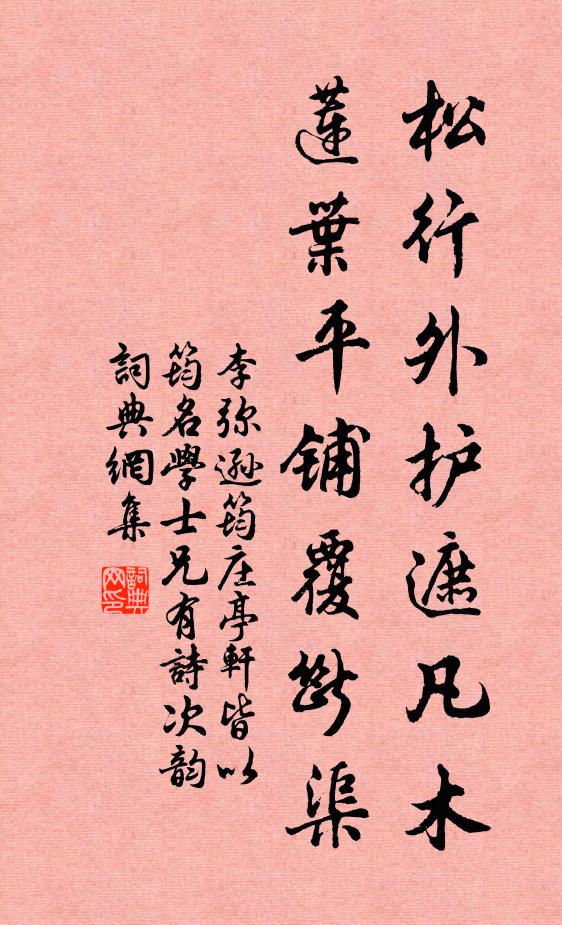 松行外护遮凡木
蓮葉平铺覆斷渠
李弥遜筠庄亭軒皆以
筠名學士兄有詩次韵
詞典網集
詞典网印